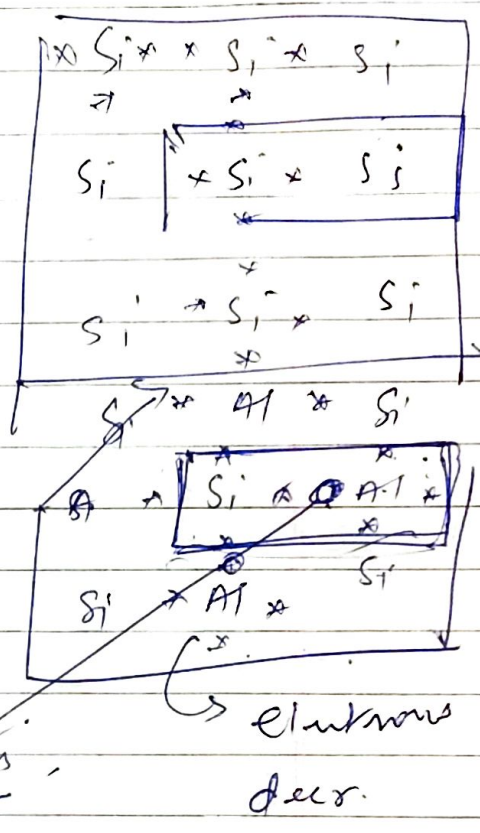 Si Si Si
Si Si Si
Si Si Si
Si Al Si
Si Al
Si
Si Al
electrons
decr.